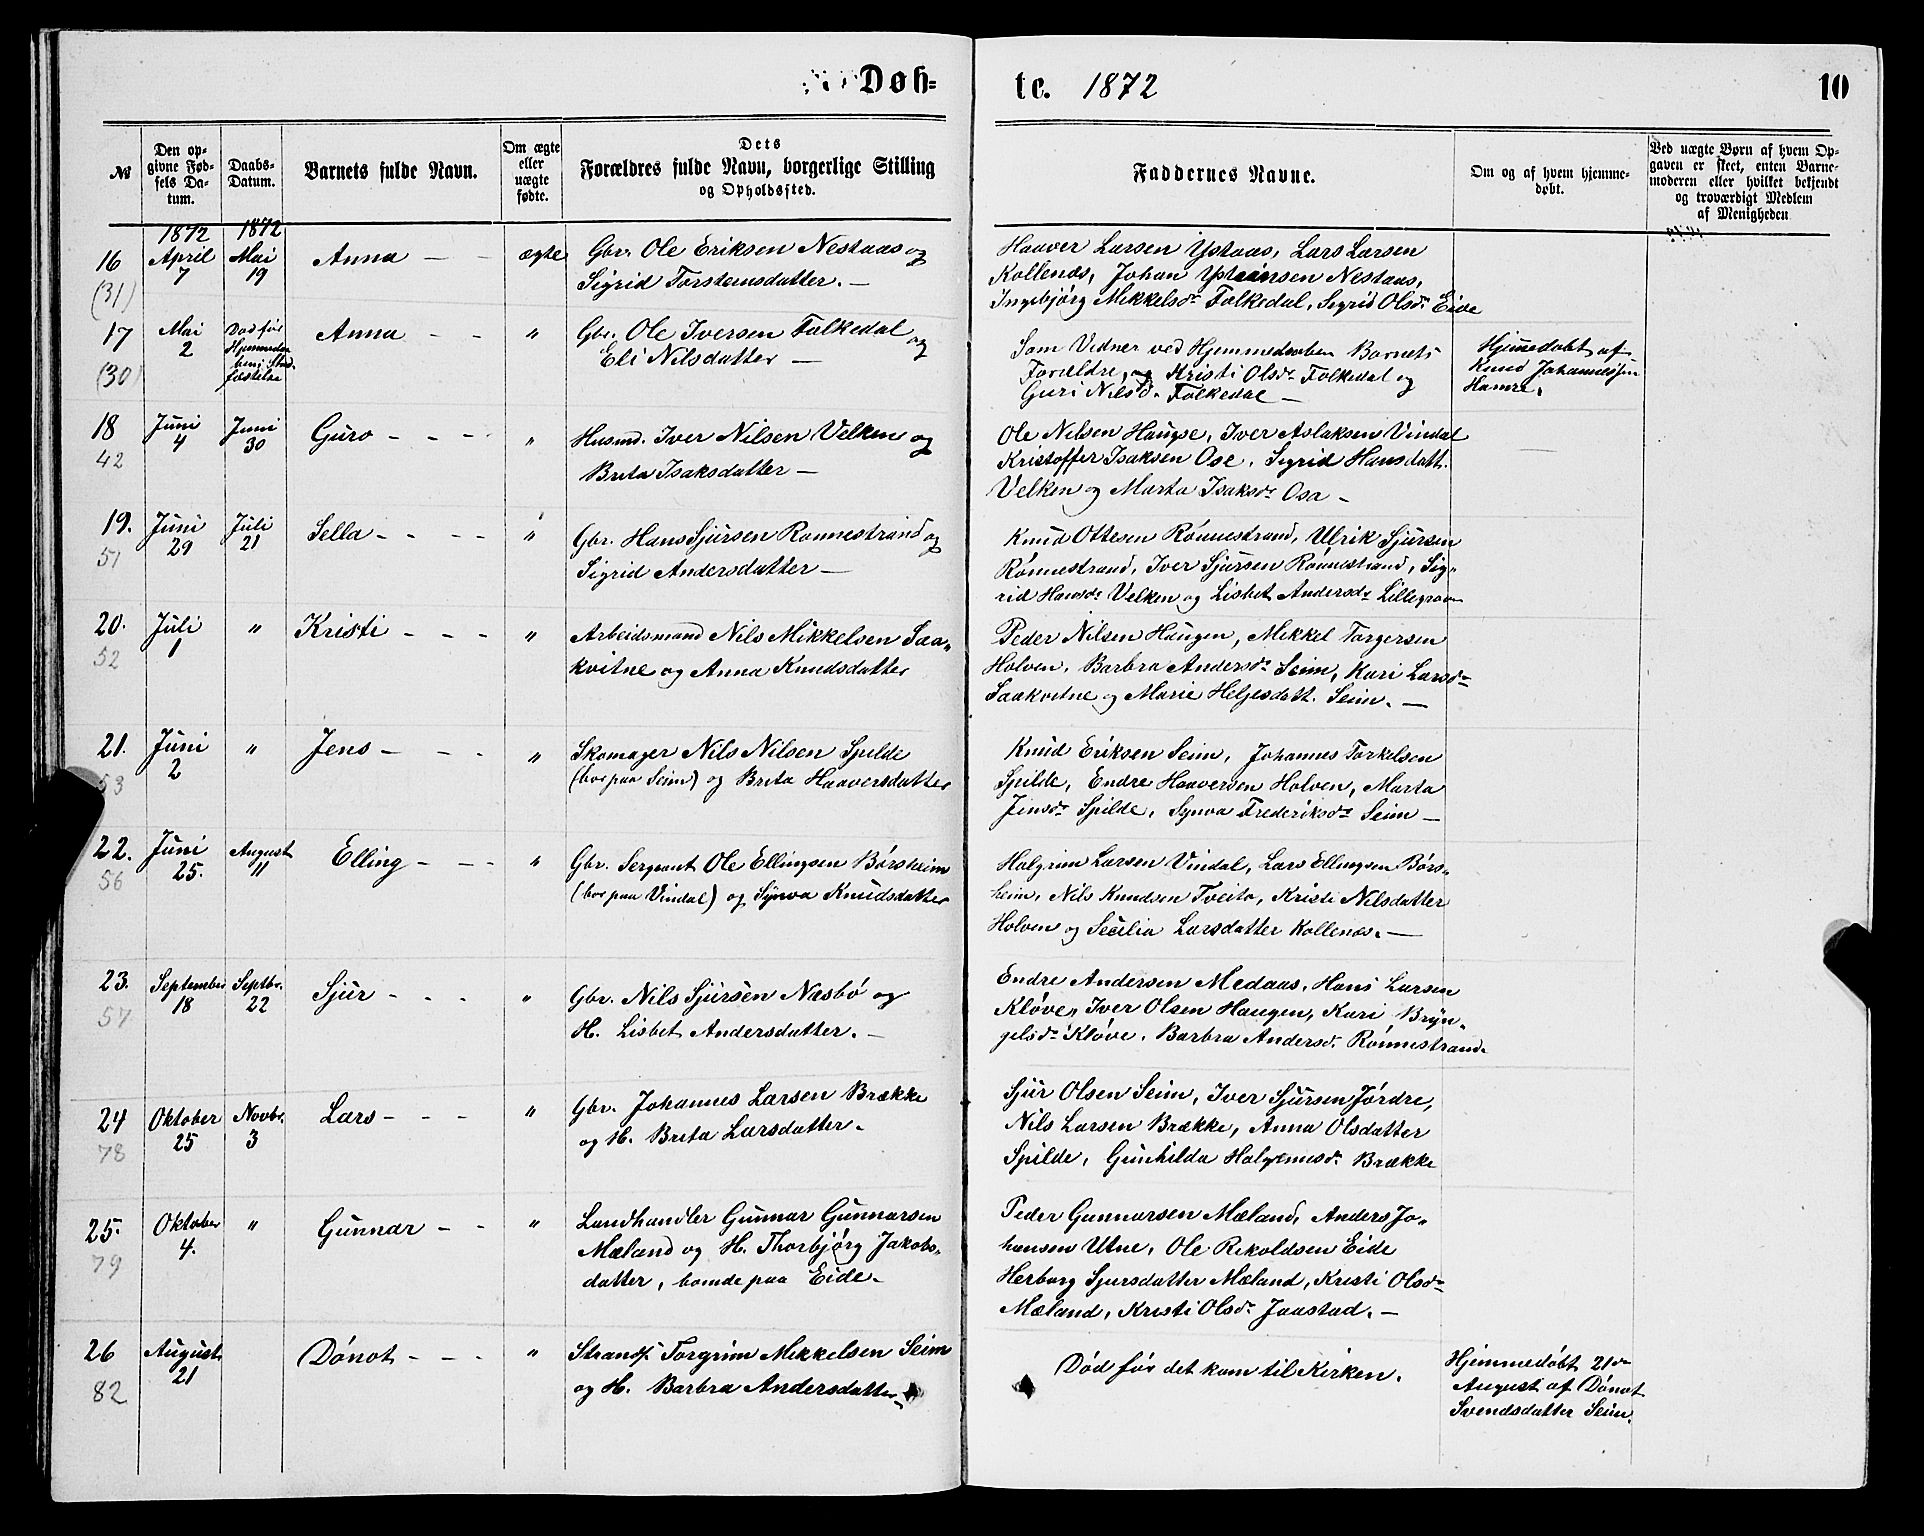 Døb-
te. 1872
10
№
Den op-
givne Fød-
sels Da-
tum.
Daabs-
Datum.
Barnets fulde Navn.
Om ægte
eller
uægte
fødte.
Dets
Forældres fulde Navn, borgerlige Stilling
og Opholdssted.
Faddernes Navne.
Om og af hvem hjemme-
døbt.
Ved uægte Børn af hvem Op-
gaven er skeet, enten Barne-
moderen eller hvilket bekjendt
og troværdigt Medlem
af Menigheden
1872
1872
16
(31)
April
7
Mai
19
Anna — —
ægte
Gbr. Ole Eriksen Nestaas og
Sigrid Torsteinsdatter. —
Haaver Larsen Ystaas, Lars Larsen
Kollenæs, Johan Ysteinsen Nestaas,
Ingebjørg Mikkelsdr Folkedal, Sigrid Olsdr Eide
17
(30)
Mai
2
Død før
Anna — —
"
Gbr. Ole Iversen Folkedal og
Eli Nilsdatter —
Som Vidner ved Hjemmedaaben Barnets
Forældre, og Kristi Olsdr Folkedal og
Guri Nilsd. Folkedal —
Hjemedøbt af
Knud Johannessen
Hamre.
18
42
Juni
4
Juni
30
Guro - - -
"
Husmd. Iver Nilsen Velken og
Brita Isaksdatter —
Ole Nilsen Haugse, Iver Aslaksen Vindal
Kristoffer Isaksen Ose, Sigrid Hansdatt.
Velken og Marta Isaksdr Osa —
—
19.
51
Juni
29
Juli
21
Sella - - - -
"
Gbr. Hans Sjursen Rønnestrand og
Sigrid Andersdatter —
Knud Ottesen Rønnestrand, Ulrik Sjursen
Rønnestrand, Iver Sjursen Rønnestrand, Sig-
rid Hansdr Velken og Lisbet Andersdr Lillegraven
20.
52
Juli
1
"
Kristi - - -
"
Arbeidsmand Nils Mikkelsen Saa-
kvitne og Anna Knudsdatter
Peder Nilsen Haugen, Mikkel Torgersen
Holven, Barbra Andersdr Seim, Kari Larsdr
Saakvitne og Marie Helgesdatt. Seim. —
21.
53
Juni
2
"
Jens - - -
"
Skomager Nils Nilsen Spilde
(bor paa Seim) og Brita Haaversdatter
Knud Eriksen Seim, Johannes Torkelsen
Spilde, Endre Haaversen Holven, Marta
Jensdr Spilde, Synva Frederiksdr Seim —
22.
56
Juni
25.
August
11
Elling - - -
"
Gbr. Sergeant Ole Ellingsen Børsheim
(bor paa Vindal) og Synva Knudsdatter
Halgrim Larsen Vindal, Lars Ellingsen Børs-
heim, Nils Knudsen Tveito, Kristi Nilsdatter
Holven og Secilia Larsdatter Kollenæs. —
23.
57
September
18
Septbr.
22
Sjur - - -
"
Gbr. Nils Sjursen Næsbø og
H. Lisbet Andersdatter. —
Endre Andersen Medaas, Hans Larsen
Kløve, Iver Olsen Haugen, Kari Bryn-
gelsdr Kløve, Barbra Andersd. Rønnestrand.
24
78
Oktober
25
Novbr.
3
Lars - - -
"
Gbr. Johannes Larsen Brække
og H. Brita Larsdatter.
Sjur Olsen Seim, Iver Sjursen Jørdre,
Nils Larsen Brække, Anna Olsdatter
Spilde, Gunhilda Halgrimsd. Brække
25.
79
Oktober
4.
"
Gunnar - -
"
Landhandler Gunnar Gunnarsen
Mæland og H. Thorbjørg Jakobs-
datter, boende paa Eide.
Peder Gunnarsen Mæland, Anders Jo-
hansen Utne, Ole Rikoldsen Eide
Herborg Sjursdatter Mæland, Kristi Olsdr
Mæland, Kristi Olsdr Jaastad. —
26
82
August
21
Dønot - - -
"
Strands. Torgrim Mikkelsen Seim
og H. Barbra Andersdatter
Død før det kom til Kirken.
Hjemmedøbt 21de
August af Dønot
Svendsdatter Seim.